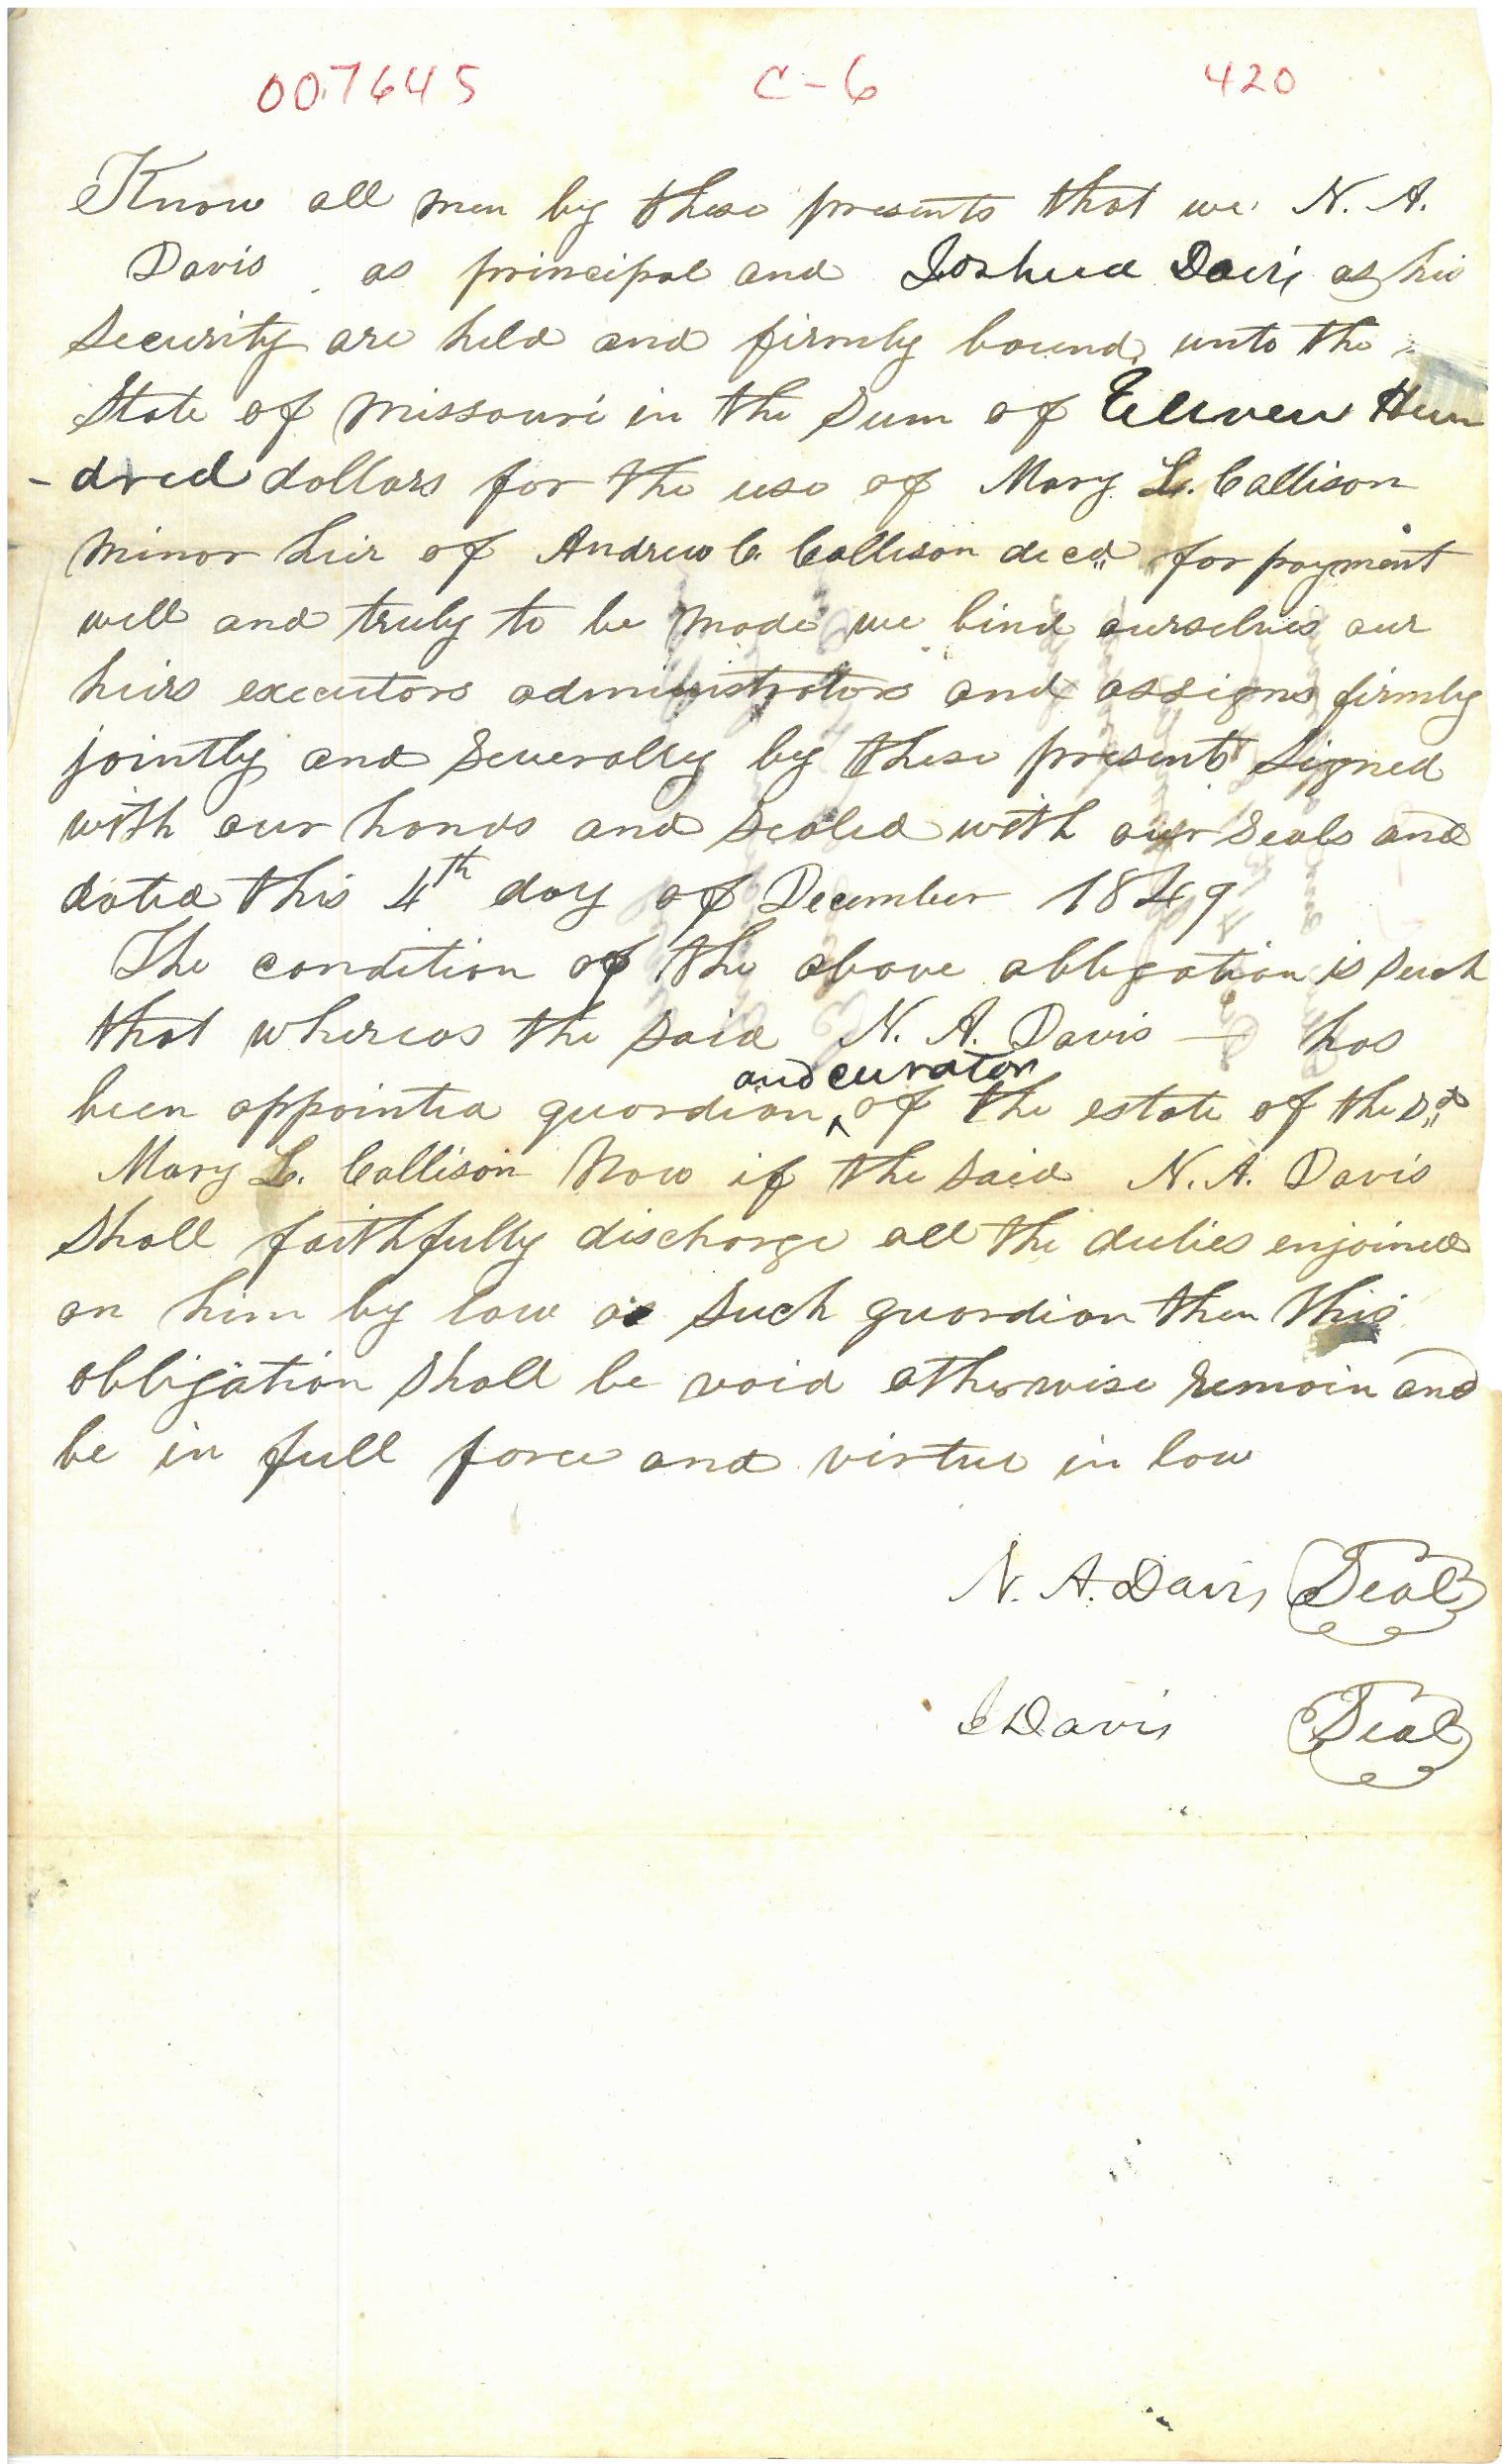 007645 C-6 420
Know all men by these presents that we N. A.
Davis as principal and Joshua Davis as his
security are held and firmly bound unto the
State of Missouri in the sum of Elleven Hun
-dred dollars for the use of Mary L. Callison
minor heir of Andrew C. Callison decd for payment
well and truly to be made we bind ourselves our
heirs executors administrators and assigns firmly
jointly and severally by these present signed
with our hands and sealed with our seals and
dated this 4th day of December 1849
The condition of the above obligation is such
that whereas the said N. A. Davis — has
and curator
been appointed guardian ^ of the estate of the sd
Mary L. Callison Now if the said N. A. Davis
shall faithfully discharge all the duties enjoined
on him by law as such guardian then this
obligation shall be void otherwise remain and
be in full force and virtue in law
N. A. Davis Seal
J Davis Seal